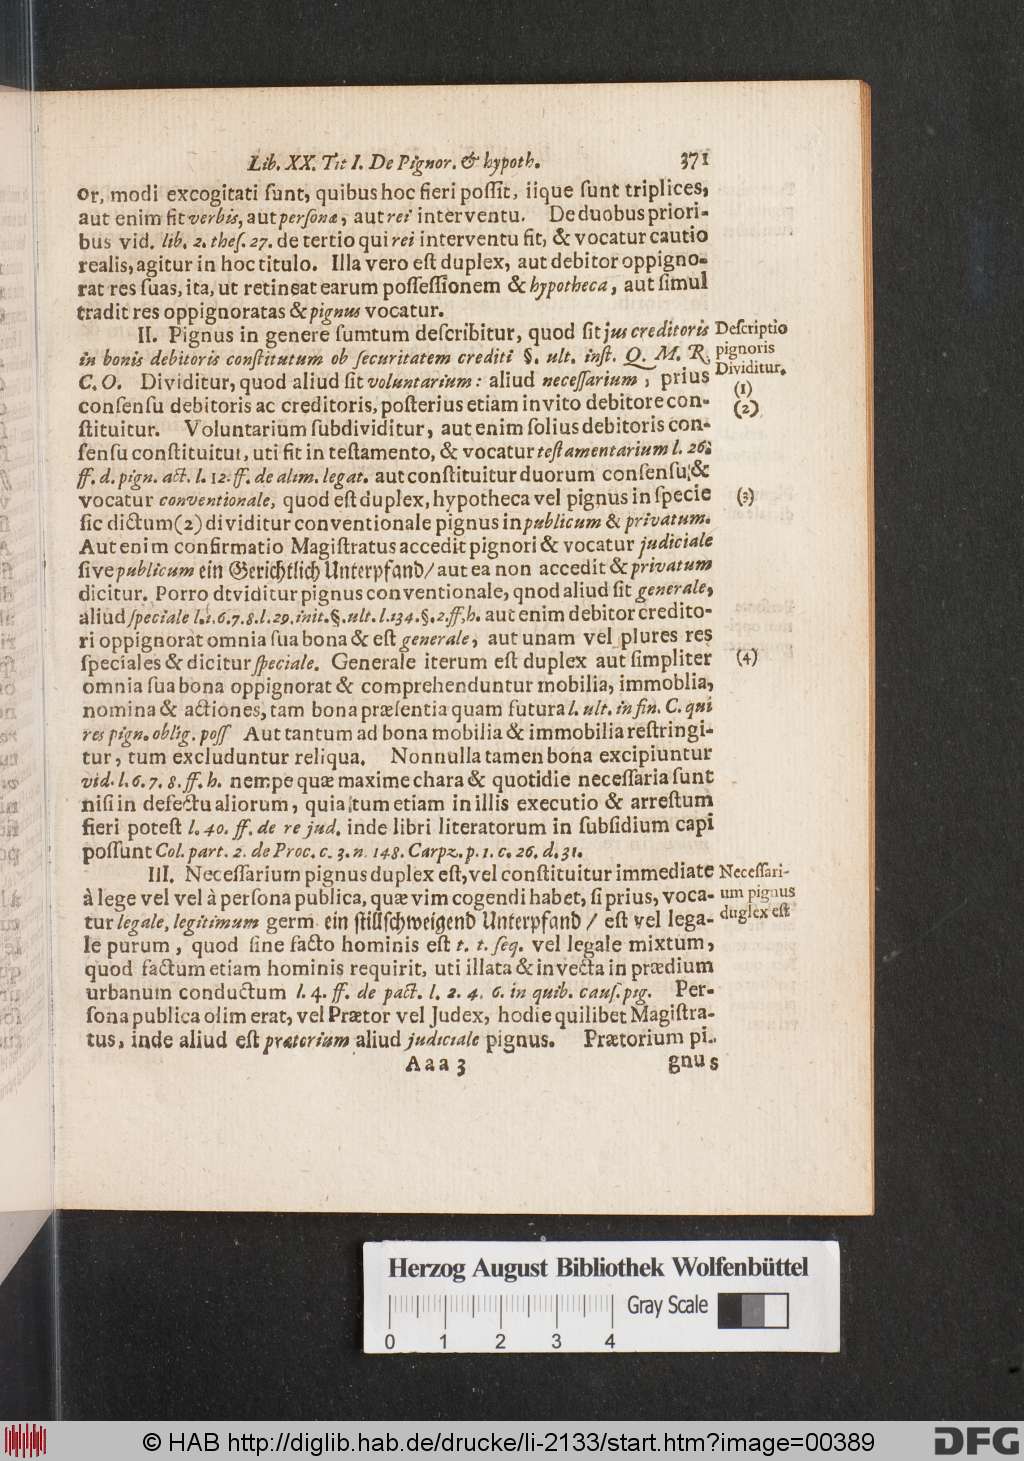 Lib. XX. Tit I. De Pignor. & hypoth. 371
or, modi excogitati ſunt, quibus hoc fieri poſſit, iique ſunt triplices,
aut enim fit verbis, aut perſonæ, aut rei interventu. De duobus priori-
bus vid. lib. 2. theſ. 27. de tertio qui rei interventu fit, & vocatur cautio
realis, agitur in hoc titulo. Illa vero eſt duplex, aut debitor oppigno-
rat res ſuas, ita, ut retineat earum poſſeſſionem & hypotheca, aut ſimul
tradit res oppignoratas & pignus vocatur.
II. Pignus in genere ſumtum deſcribitur, quod ſit jus creditoris
in bonis debitoris conſtitutum ob ſecuritatem crediti §. ult. inſt. Q. M. R.
C. O. Dividitur, quod aliud ſit voluntarium: aliud neceſſarium, prius
conſenſu debitoris ac creditoris, poſterius etiam invito debitore con-
ſtituitur. Voluntarium ſubdividitur, aut enim ſolius debitoris con-
ſenſu conſtituitur, uti fit in teſtamento, & vocatur teſtamentarium l. 26.
ff. d. pign. act. l. 12. ff. de alim. legat. aut conſtituitur duorum conſenſu, &
vocatur conventionale, quod eſt duplex, hypotheca vel pignus in ſpecie
ſic dictum (2) dividitur conventionale pignus in publicum & privatum.
Aut enim confirmatio Magiſtratus accedit pignori & vocatur judiciale
ſive publicum ein Gerichtlich Unterpfand/ aut ea non accedit & privatum
dicitur. Porro dtviditur pignus conventionale, qnod aliud ſit generale,
aliud ſpeciale l. 1. 6. 7. 8. l. 29. init. §. ult. l. 134. §. 2. ff. h. aut enim debitor credito-
ri oppignorat omnia ſua bona & eſt generale, aut unam vel plures res
ſpeciales & dicitur ſpeciale. Generale iterum eſt duplex aut ſimpliter
omnia ſua bona oppignorat & comprehenduntur mobilia, immoblia,
nomina & actiones, tam bona præſentia quam futura l. ult. in fin. C. qui
res pign. oblig. poſſ Aut tantum ad bona mobilia & immobilia reſtringi-
tur, tum excluduntur reliqua. Nonnulla tamen bona excipiuntur
vid. l. 6. 7. 8. ff. h. nempe quæ maxime chara & quotidie neceſſaria ſunt
niſi in defectu aliorum, quia tum etiam in illis executio & arreſtum
fieri poteſt l. 40. ff. de re jud. inde libri literatorum in ſubſidium capi
poſſunt Col. part. 2. de Proc. c. 3. n. 148. Carpz. p. 1. c. 26. d. 31.
III. Neceſſarium pignus duplex eſt, vel conſtituitur immediate
à lege vel vel à perſona publica, quæ vim cogendi habet, ſi prius, voca-
tur legale, legitimum germ. ein ſtillſchweigend Unterpfand / eſt vel lega-
le purum, quod ſine facto hominis eſt t. t. ſeq. vel legale mixtum,
quod factum etiam hominis requirit, uti illata & invecta in prædium
urbanum conductum l. 4. ff. de pact. l. 2. 4. 6. in quib. cauſ. pig. Per-
ſona publica olim erat, vel Prætor vel Judex, hodie quilibet Magiſtra-
tus, inde aliud eſt prætorium aliud judiciale pignus. Prætorium pi-
Aaa 3 gnus
Deſcriptio
pignoris
Dividitur.
(1)
(2)
(3)
(4)
Neceſſari-
um pignus
duglex eſt
Herzog August Bibliothek Wolfenbüttel
Gray Scale
0 1 2 3 4
© HAB http://diglib.hab.de/drucke/li-2133/start.htm?image=00389
DFG